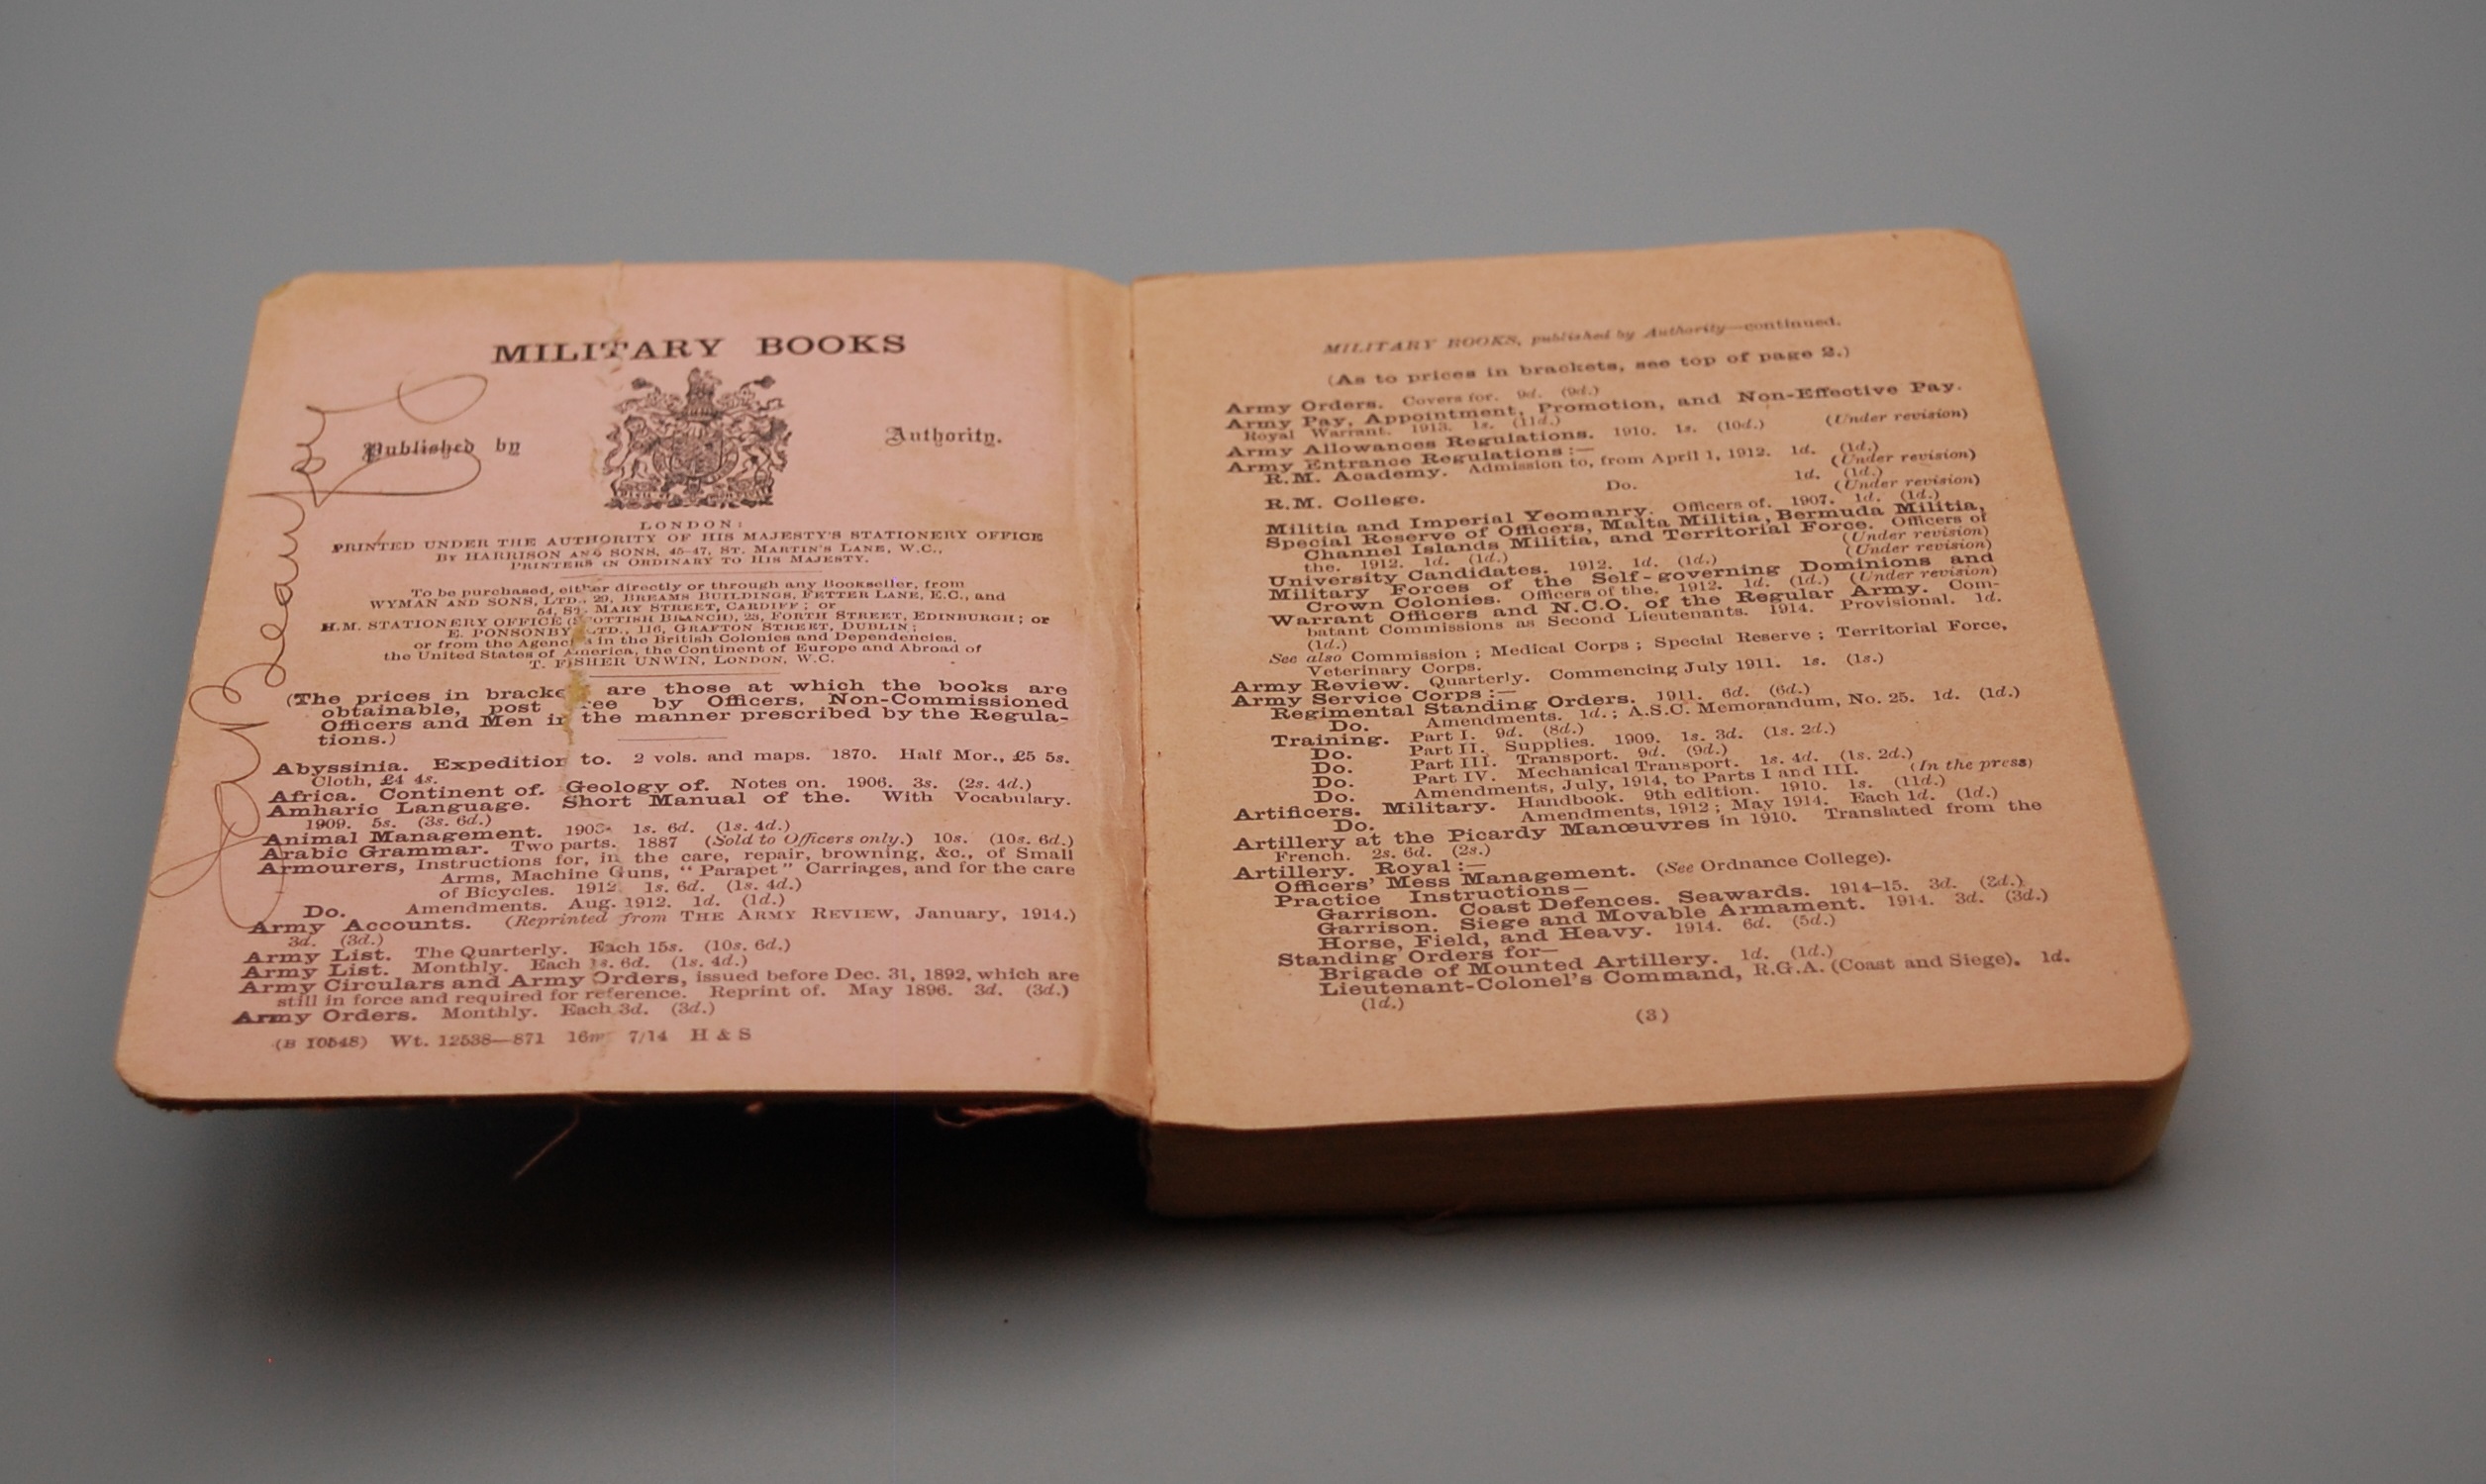 MILITARY BOOKS
Published by Authority.
LONDON:
PRINTED UNDER THE AUTHORITY OF HIS MAJESTY'S STATIONERY OFFICE
BY HARRISON AND SONS, 45-47, ST. MARTIN'S LANE, W.C.,
PRINTERS IN ORDINARY TO HIS MAJESTY.
To be purchased, either directly or through any Bookseller, from
WYMAN AND SONS, LTD., 29, BREAMS BUILDINGS, FETTER LANE, E.C., and
54, ST. MARY STREET, CARDIFF; or
H.M. STATIONERY OFFICE (SCOTTISH BRANCH), 23, FORTH STREET, EDINBURGH; or
E. PONSONBY, LTD., 116, GRAFTON STREET, DUBLIN;
or from the Agencies in the British Colonies and Dependencies,
the United States of America, the Continent of Europe and Abroad of
T. FISHER UNWIN, LONDON, W.C.
(The prices in bracke are those at which the books are
obtainable, post ree by Officers, Non-Commissioned
Officers and Men in the manner prescribed by the Regula-
tions.)
Abyssinia. Expedition to. 2 vols. and maps. 1870. Half Mor., £5 5s.
Cloth, £4 4s.
Africa. Continent of. Geology of. Notes on. 1906. 3s. (2s. 4d.)
Amharic Language. Short Manual of the. With Vocabulary.
1909. 5s. (3s. 6d.)
Animal Management. 1s. 6d. (1s. 4d.)
Arabic Grammar. Two parts. 1887 (Sold to Officers only.) 10s. (10s. 6d.)
Armourers, Instructions for, in the care, repair, browning, &c., of Small
Arms, Machine Guns, "Parapet" Carriages, and for the care
of Bicycles. 1912 1s. 6d. (1s. 4d.)
Do. Amendments. Aug. 1912. 1d. (1d.)
Army Accounts. (Reprinted from THE ARMY REVIEW, January, 1914.)
3d. (3d.)
Army List. The Quarterly. Each 15s. (10s. 6d.)
Army List. Monthly. Each 1s. 6d. (1s. 4d.)
Army Circulars and Army Orders, issued before Dec. 31, 1892, which are
still in force and required for reference. Reprint of. May 1896. 3d. (3d.)
Army Orders. Monthly. Each 3d. (3d.)
(B 10548) Wt. 12538—871 16m 7/14 H & S
MILITARY BOOKS, published by Authority—continued.
(As to prices in brackets, see top of page 2.)
Army Orders. Covers for. 9d. (9d.)
Army Pay, Appointment, Promotion, and Non-Effective Pay.
Royal Warrant. 1913. 1s. (11d.)
Army Allowances Regulations. 1910. 1s. (10d.) (Under revision)
Army Entrance Regulations:—
R.M. Academy. Admission to, from April 1, 1912. 1d. (1d.)
(Under revision)
R.M. College. Do. 1d. (1d.)
(Under revision)
Militia and Imperial Yeomanry. Officers of. 1907. 1d. (1d.)
Special Reserve of Officers, Malta Militia, Bermuda Militia,
Channel Islands Militia, and Territorial Force. Officers of
the. 1912. 1d. (1d.) (Under revision)
University Candidates. 1912. 1d. (1d.) (Under revision)
Military Forces of the Self-governing Dominions and
Crown Colonies. Officers of the. 1912. 1d. (1d.) (Under revision)
Warrant Officers and N.C.O. of the Regular Army. Com-
batant Commissions as Second Lieutenants. 1914. Provisional. 1d.
(1d.)
See also Commission; Medical Corps; Special Reserve; Territorial Force,
Veterinary Corps.
Army Review. Quarterly. Commencing July 1911. 1s. (1s.)
Army Service Corps:—
Regimental Standing Orders. 1911. 6d. (6d.)
Do. Amendments. 1d.; A.S.C. Memorandum, No. 25. 1d. (1d.)
Training. Part I. 9d. (8d.)
Do. Part II. Supplies. 1909. 1s. 3d. (1s. 2d.)
Do. Part III. Transport. 9d. (9d.)
Do. Part IV. Mechanical Transport. 1s. 4d. (1s. 2d.)
Do. Amendments, July, 1914, to Parts I and III. (In the press)
Artificers. Military. Handbook. 9th edition. 1910. 1s. (11d.)
Do. Amendments, 1912; May 1914. Each 1d. (1d.)
Artillery at the Picardy Manœuvres in 1910. Translated from the
French. 2s. 6d. (2s.)
Artillery. Royal:—
Officers' Mess Management. (See Ordnance College).
Practice Instructions—
Garrison. Coast Defences. Seawards. 1914-15. 3d. (3d.)
Garrison. Siege and Movable Armament. 1914. 3d. (3d.)
Horse, Field, and Heavy. 1914. 6d. (5d.)
Standing Orders for—
Brigade of Mounted Artillery. 1d. (1d.)
Lieutenant-Colonel's Command, R.G.A. (Coast and Siege). 1d.
(1d.)
(3)